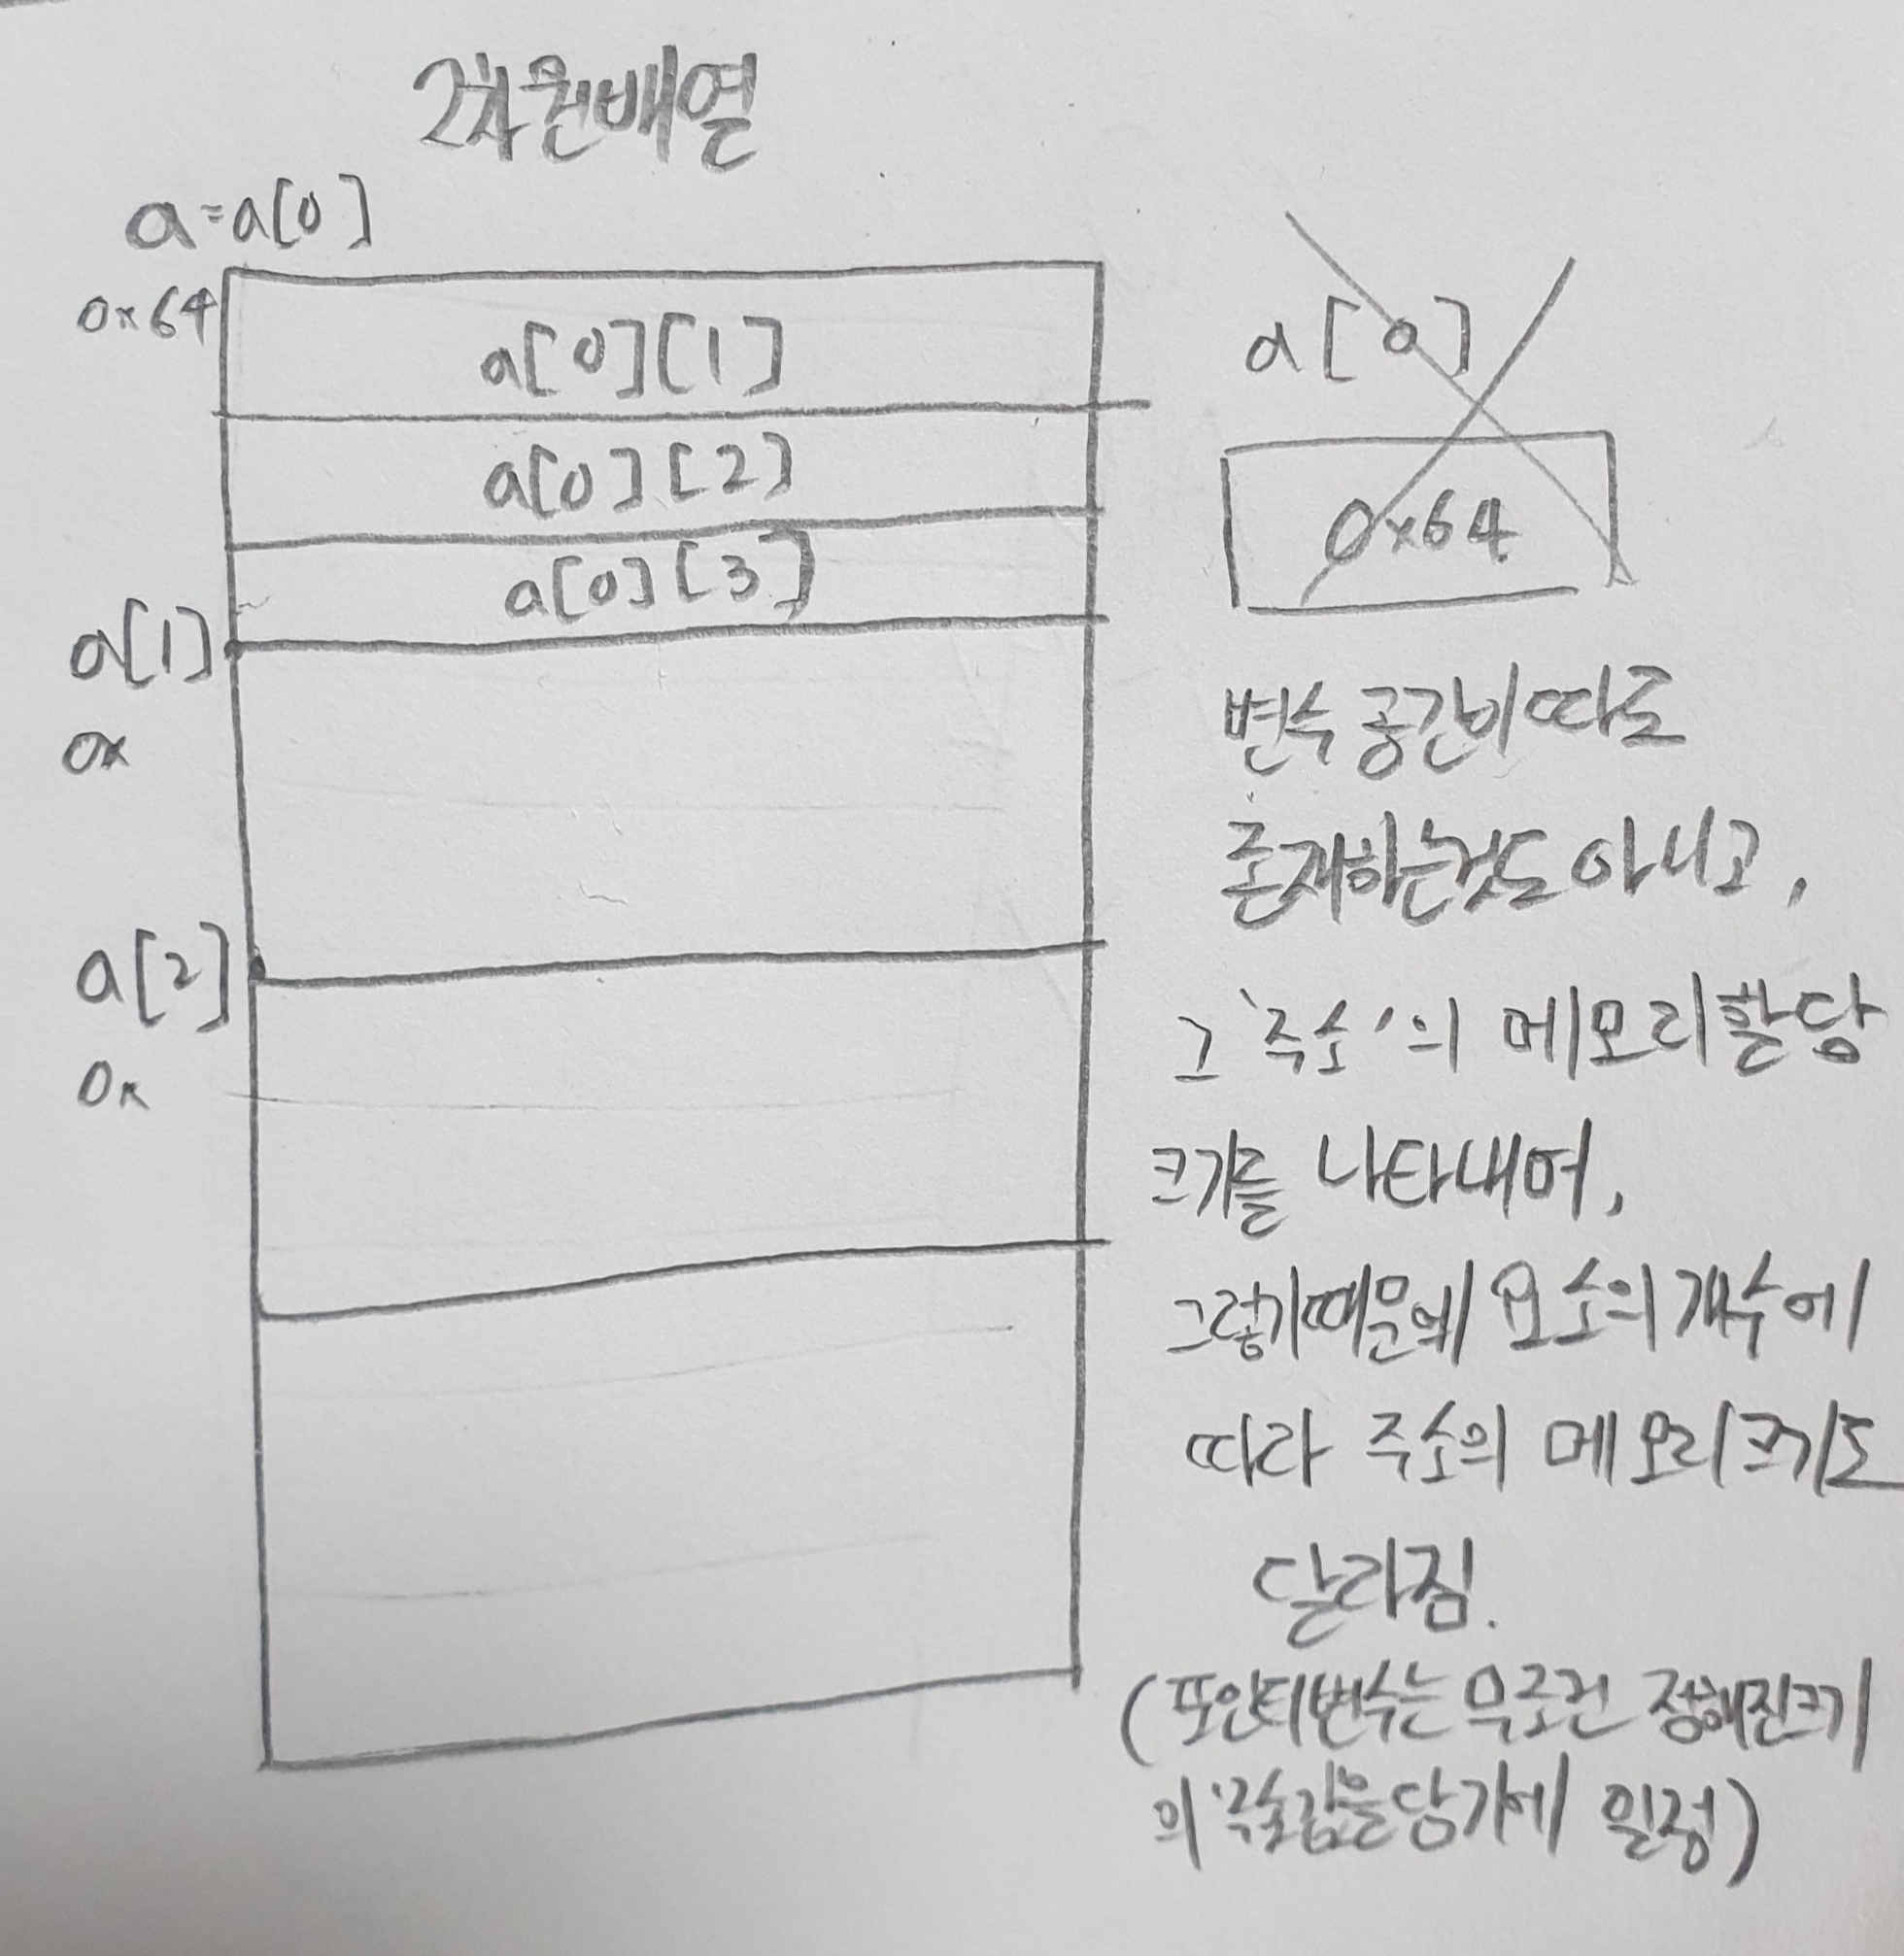 2차원배열
a=a[0]
0x64
a[0][1]
a[0][2]
a[0][3]
a[1]
0x
a[2]
0x
a[0]
0x64
변수 공간이 따로
존재하는것도 아니고,
그 '주소'의 메모리할당
크기를 나타내어,
그렇기때문에 요소의 개수에
따라 주소의 메모리크기도
달라짐.
(포인터변수는 무조건 정해진크기
의 '주솟값'을담기에 일정)